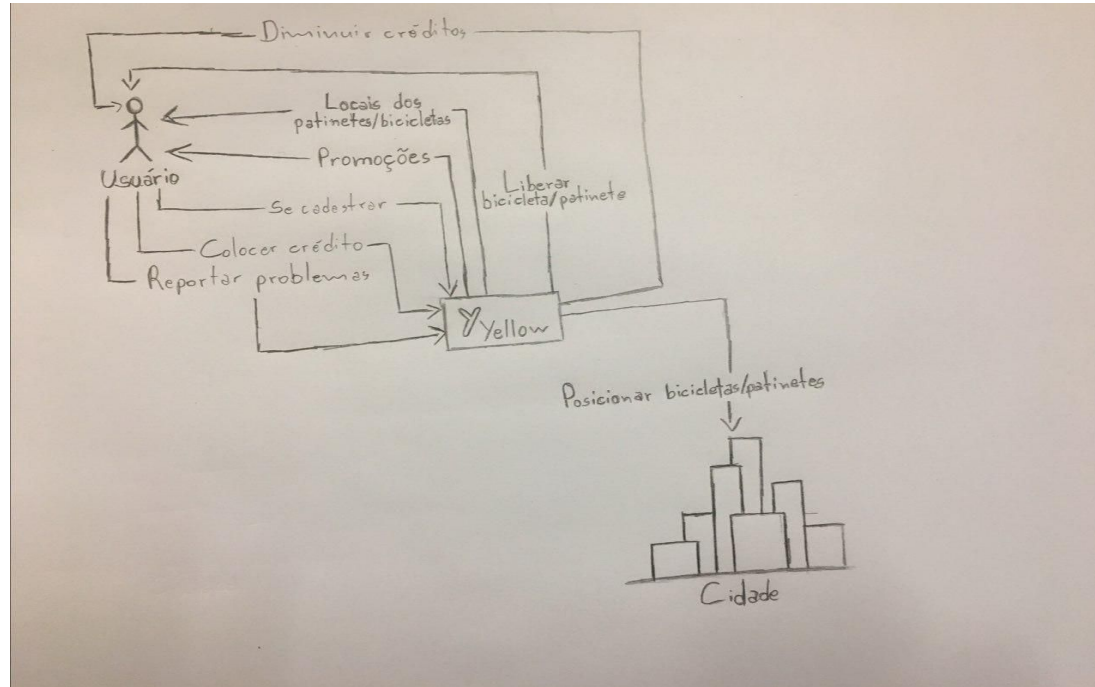 Diminuir créditos
Locais dos
patinetes/bicicletas
Promoções
Usuário
Liberar
bicicleta/patinete
Se cadastrar
Colocar crédito
Reportar problemas
Yellow
Posicionar bicicletas/patinetes
Cidade